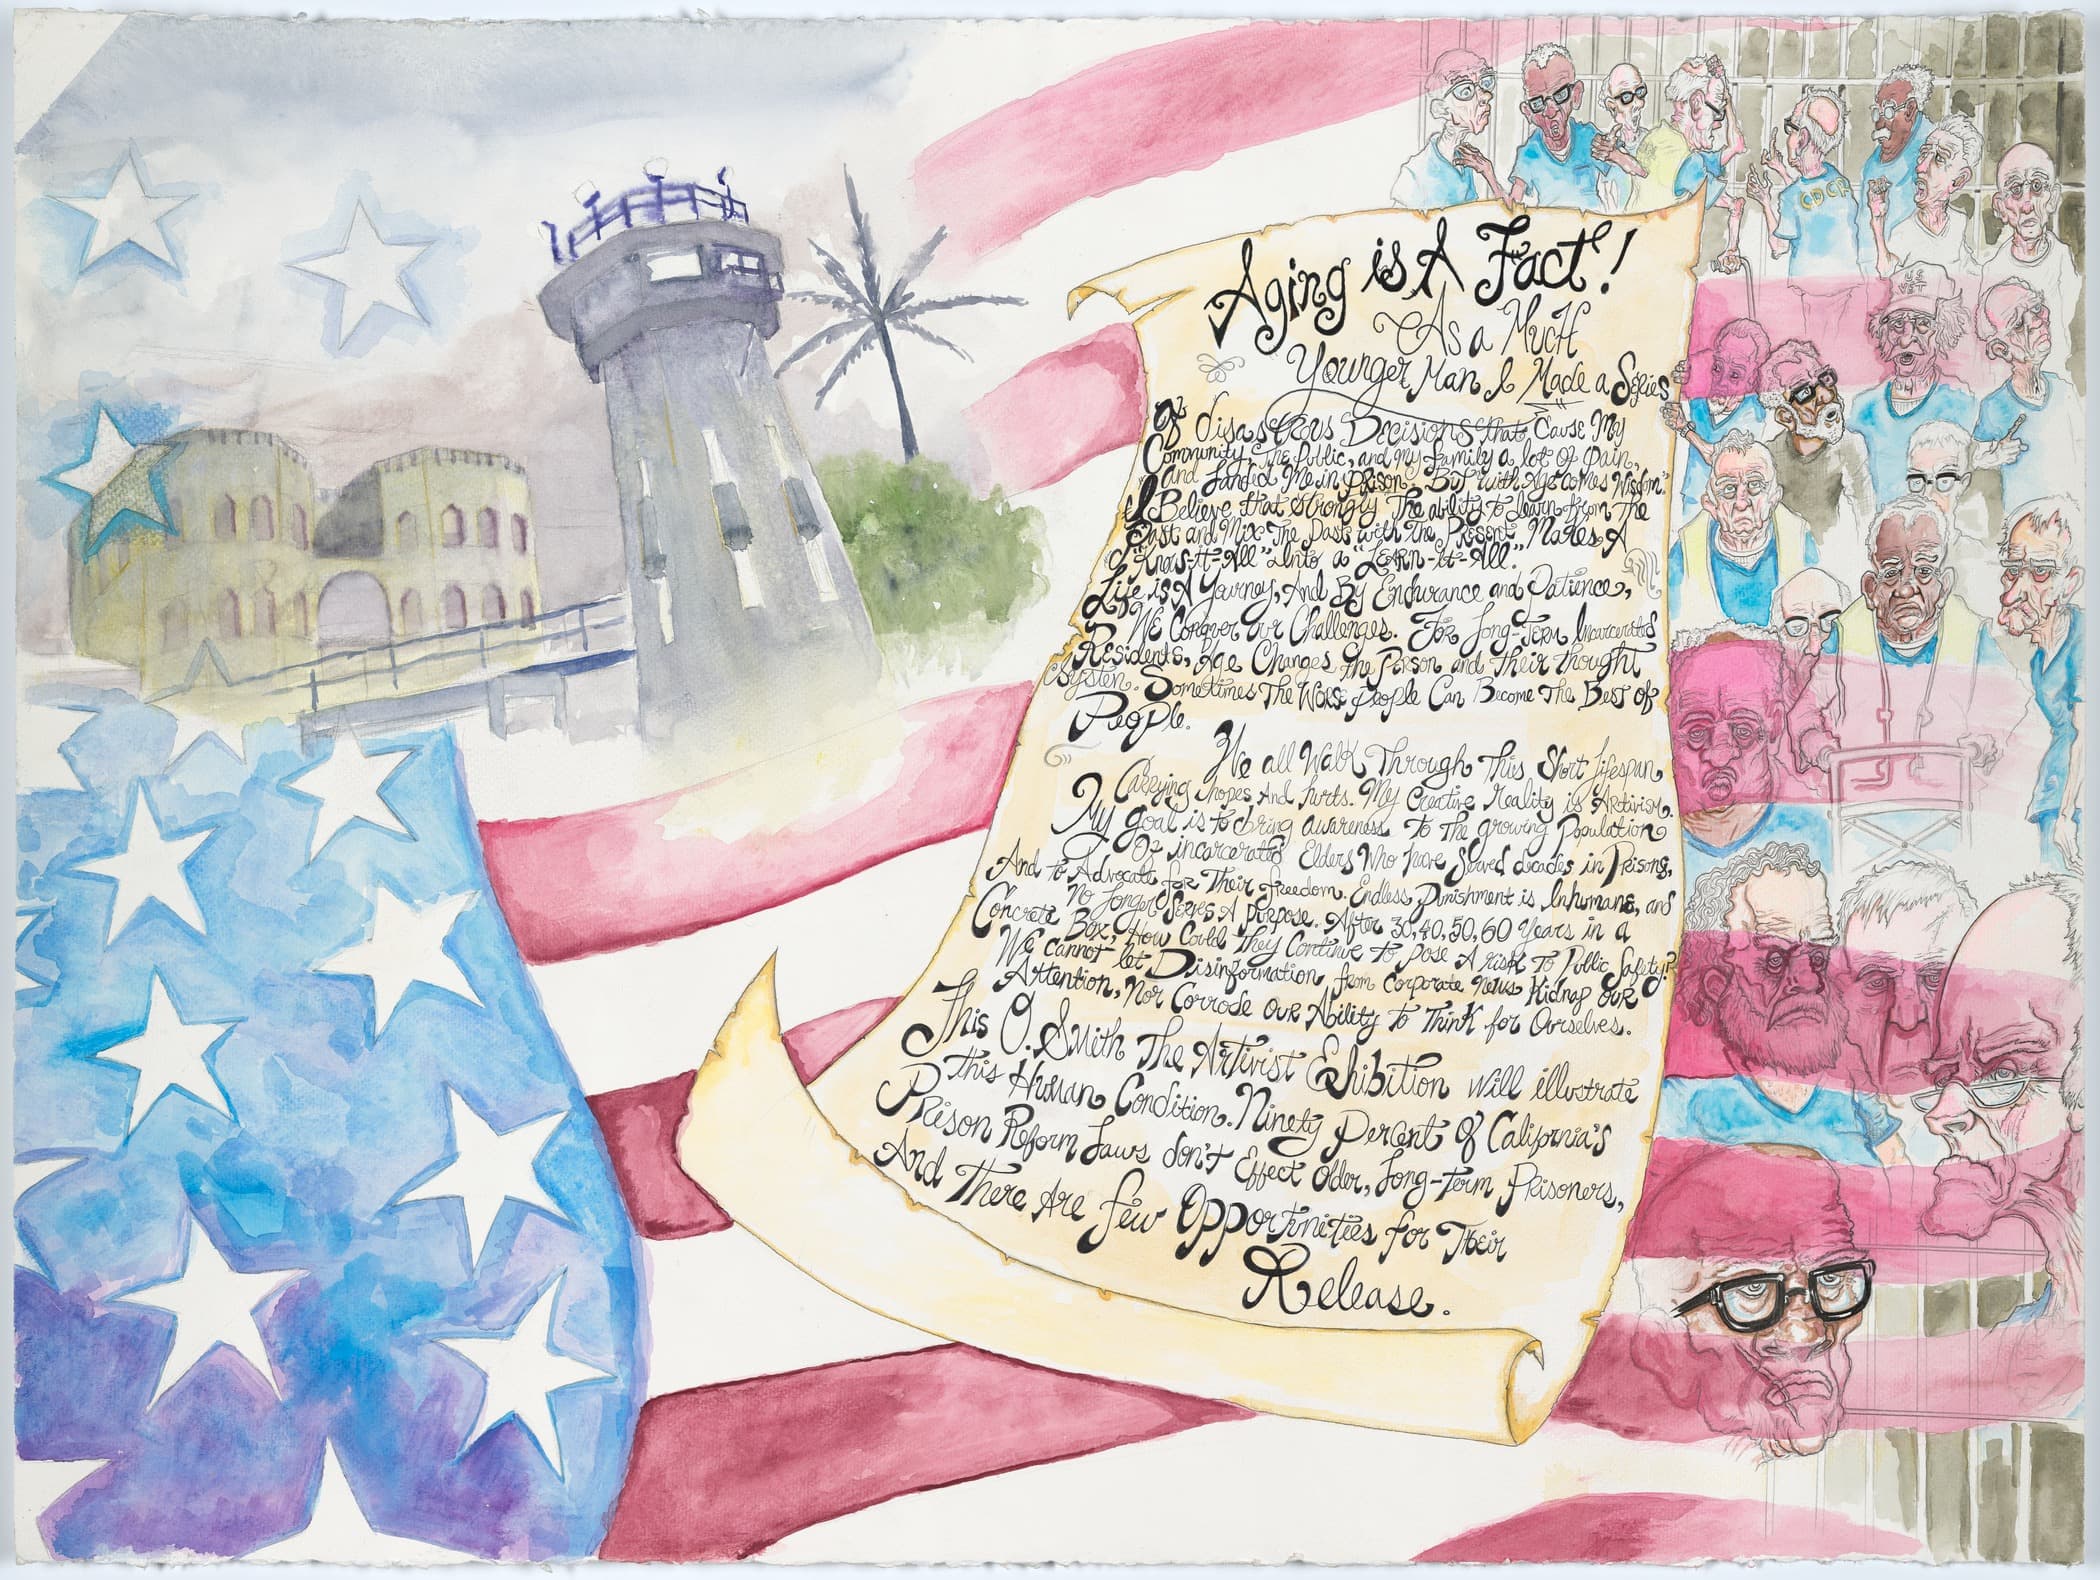 Aging is A Fact!
As a Much
Younger Man I Made a Series
Of disastrous Decisions that Cause My
Community, The Public, and my family a lot of Pain,
and Landed Me in Prison. But with Age comes Wisdom."
I Believe that strongly. The ability to learn from The
Past and Mix The Past with The Present, Makes A
"Know-It-All" Into a "LEARN-it-All."
Life is A Journey, And By Endurance and Patience,
We Conquer our Challenges. For Long-Term Incarcerated
Residents, Age Changes The Person and Their thought
System. Sometimes The Worse People Can Become The Best of
People.
We all Walk Through This Short lifespan
Carrying hopes And hurts. My Creative reality is Artivism.
My goal is to bring awareness To The growing Population
Of incarcerated Elders Who have Served decades in Prisons,
And to Advocate for Their freedom. Endless Punishment is Inhumane, and
No longer Serves A purpose. After 30, 40, 50, 60 years in a
Concrete Box, How Could They Continue to pose A risk To Public Safety?
We cannot let Disinformation from Corporate News Kidnap our
Attention, Nor Corrode our Ability To Think for Ourselves.
This O. Smith The Artivist Exhibition will illustrate
this Human Condition. Ninety Percent Of California's
Prison Reform Laws don't Effect Older, Long-Term Prisoners,
And There Are few Opportunities for Their
Release.
CDCR
US
VET